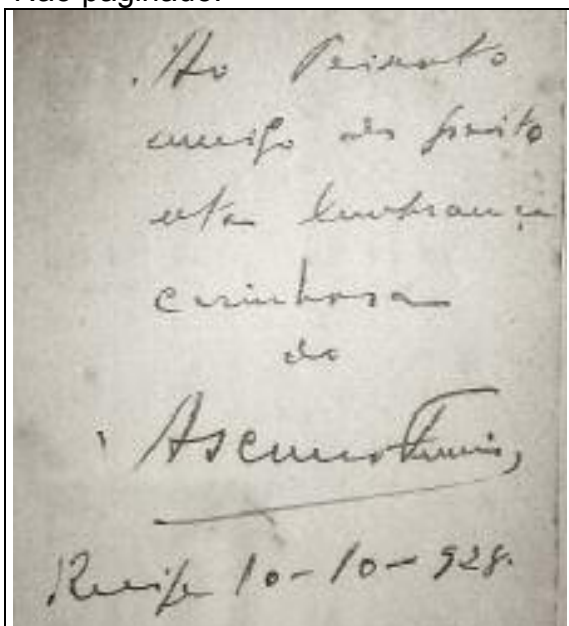 Não paginado.
Ao Peixoto
amigo do peito
esta lembrança
carinhosa
do
Ascenso Ferreira,
Recife 10-10-928.